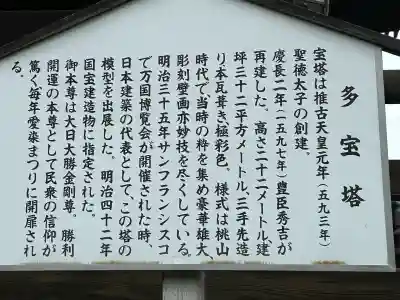 多宝塔
宝塔は推古天皇元年(五九三年)
聖徳太子の創建。
慶長二年(五九七年)豊臣秀吉が
再建した。高さ二十二メートル、建
坪三十二平方メートル、三手先造
り本瓦葺き、極彩色、様式は桃山
時代で、当時の粋を集め豪華雄大、
彫刻壁画亦妙技を尽くしている。
明治三十五年サンフランシスコ
で万国博覧会が開催された時、
日本建築の代表として、この塔の
模型を出展した。明治四十二年
国宝建造物に指定された。
御本尊は大日大勝金剛尊。勝利
開運の本尊として民衆の信仰が
篤く、毎年愛染まつりに開扉され
る。